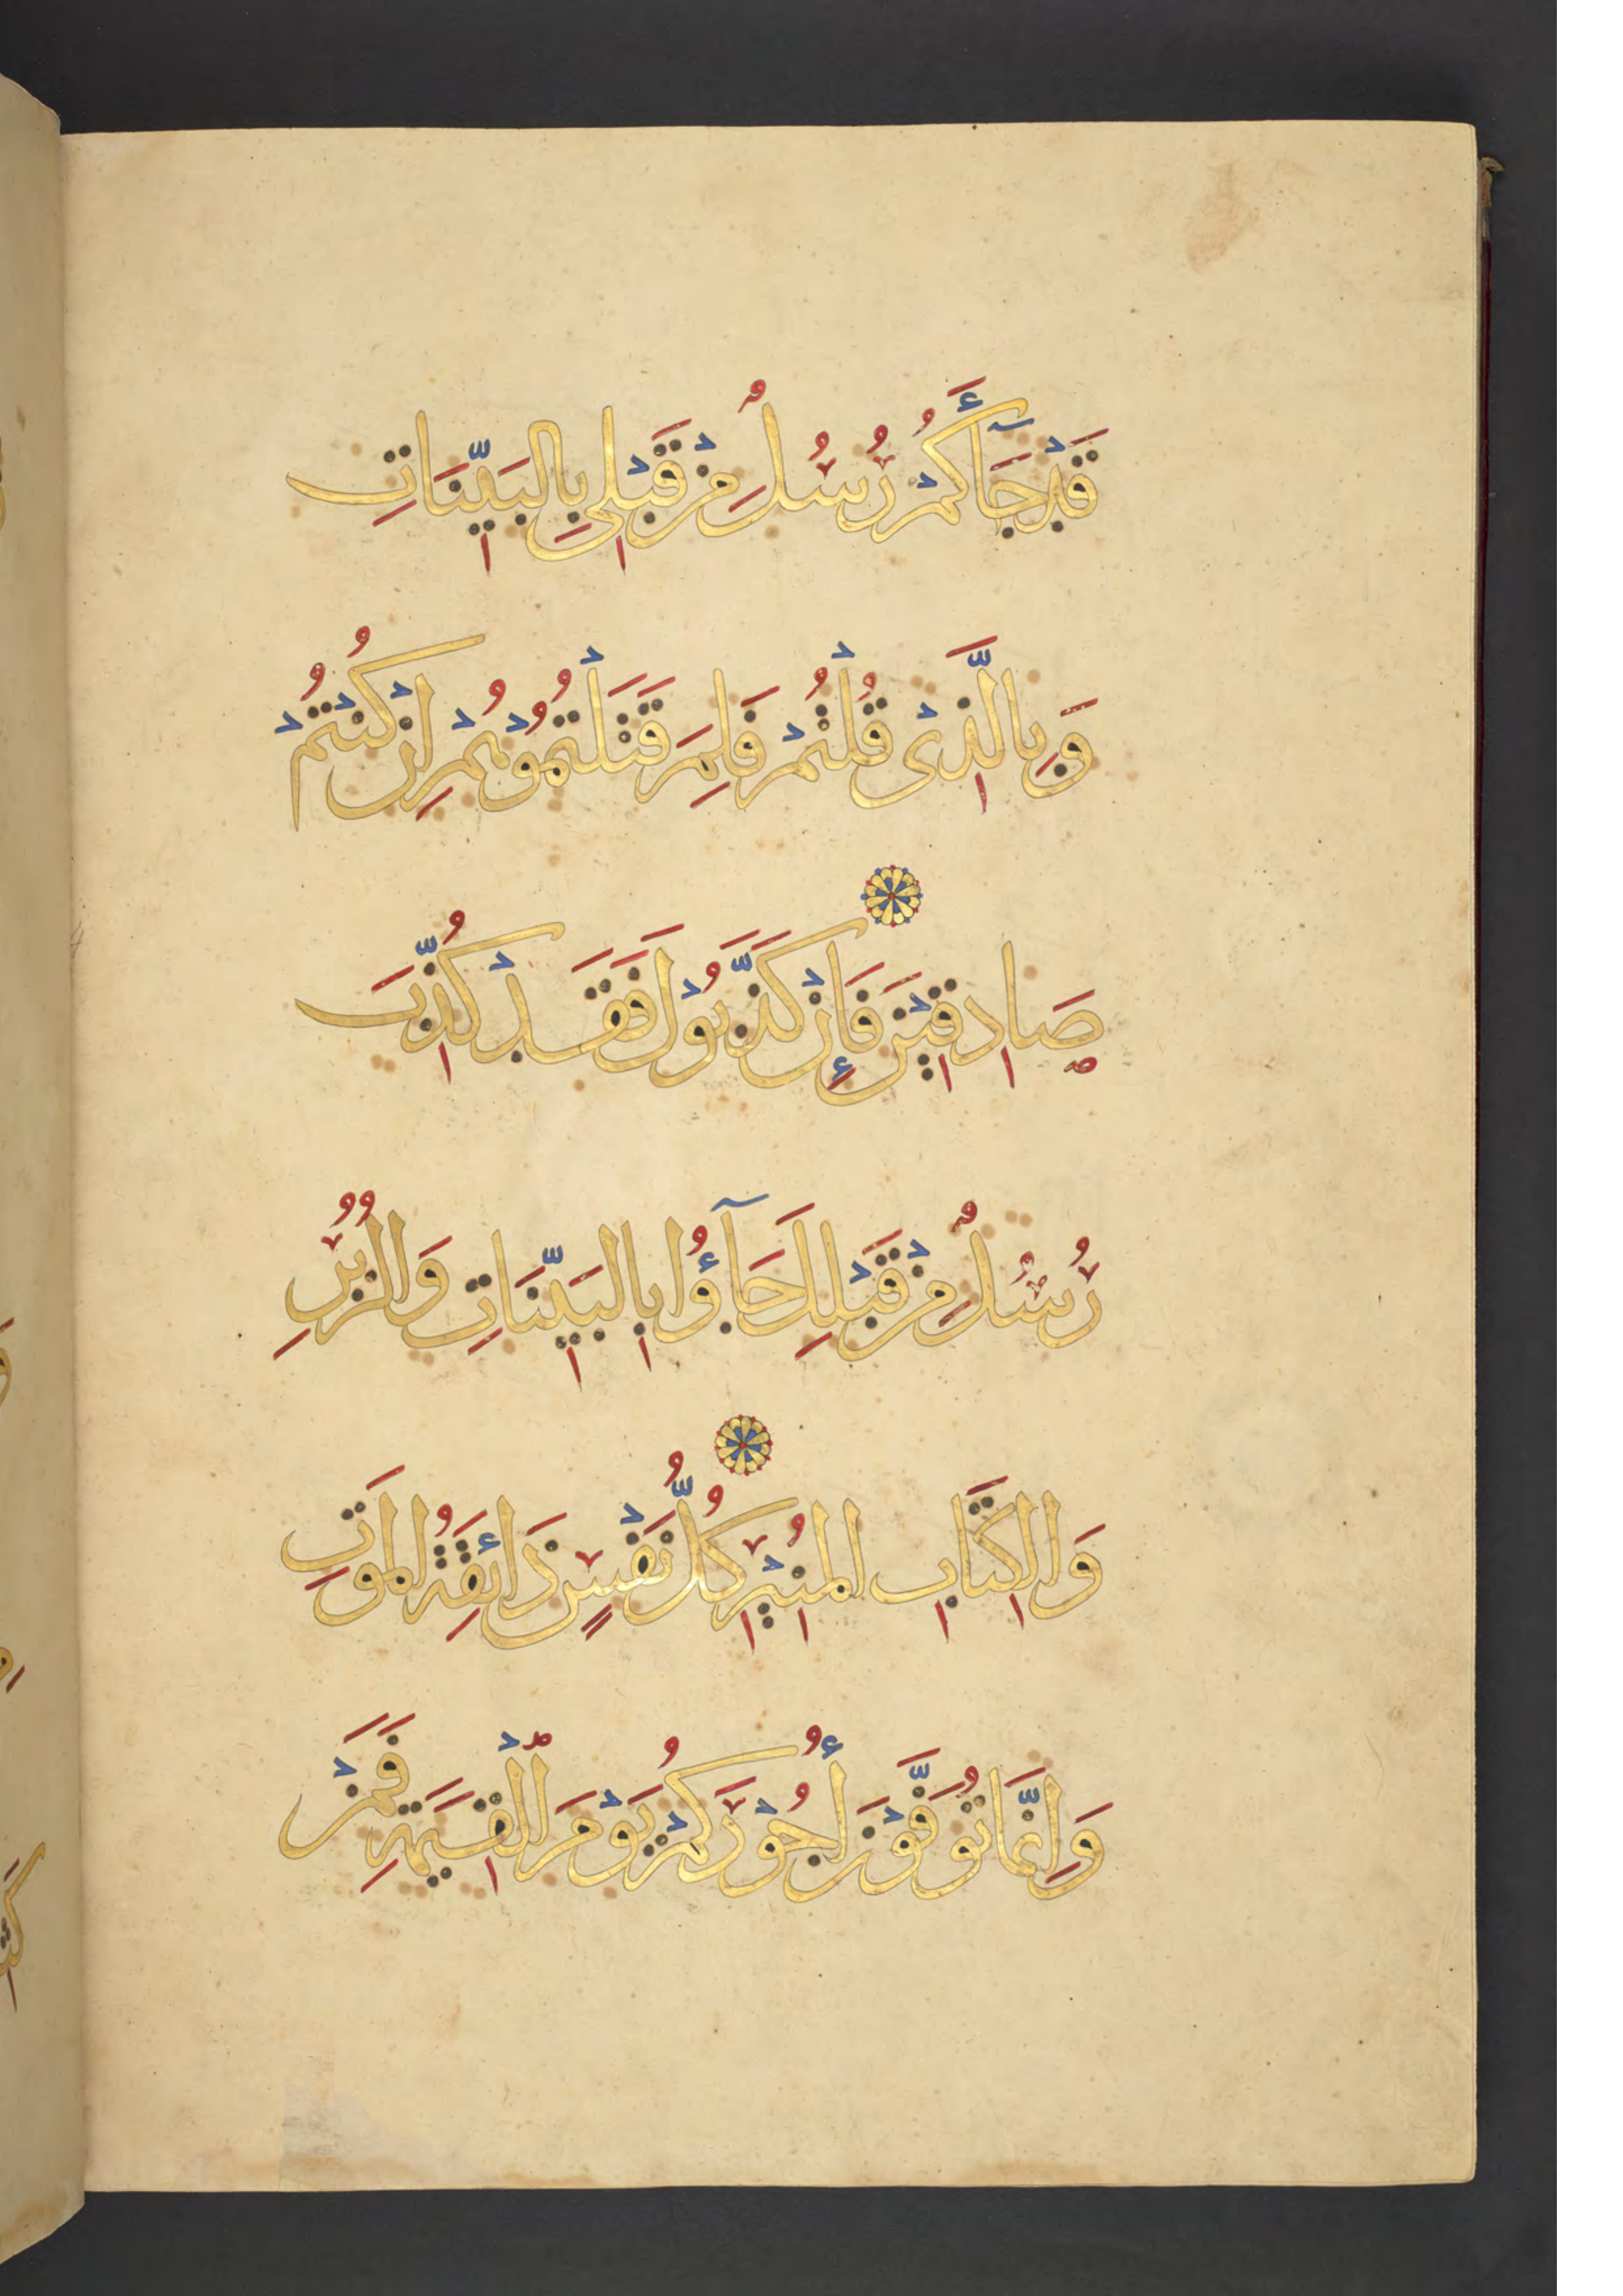 قَدْ جَآءَكُمْ رُسُلٌ مِنْ قَبْلِى بِالبَيِّنَاتِ
وَبِالَّذِى قُلْتُمْ فَلِمَ قَتَلْتُمُوْهُمْ اِنْ كُنْتُمْ
صَادِقِيْنَ فَإِنْ كَذَّبُوْكَ فَقَدْ كُذِّبَ
رُسُلٌ مِنْ قَبْلِكَ جَآؤُا بِالبَيِّنَاتِ وَالزُّبُرِ
وَالكِتَابِ المُنِيْرِ كُلُّ نَفْسٍ ذَائِقَةُ المَوتِ
وَاِنَّمَا تُوَفَّوْنَ أُجُوْرَكُمْ يَوْمَ الْقِيَمَةِ فَمَنْ